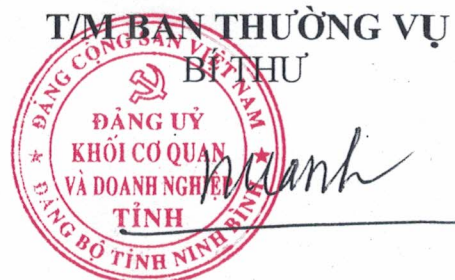 T/M BAN THƯỜNG VỤ
BÍ THƯ
ĐẢNG CỘNG SẢN VIỆT NAM
ĐẢNG UỶ
KHỐI CƠ QUAN
VÀ DOANH NGHIỆP
TỈNH
ĐẢNG BỘ TỈNH NINH BÌNH